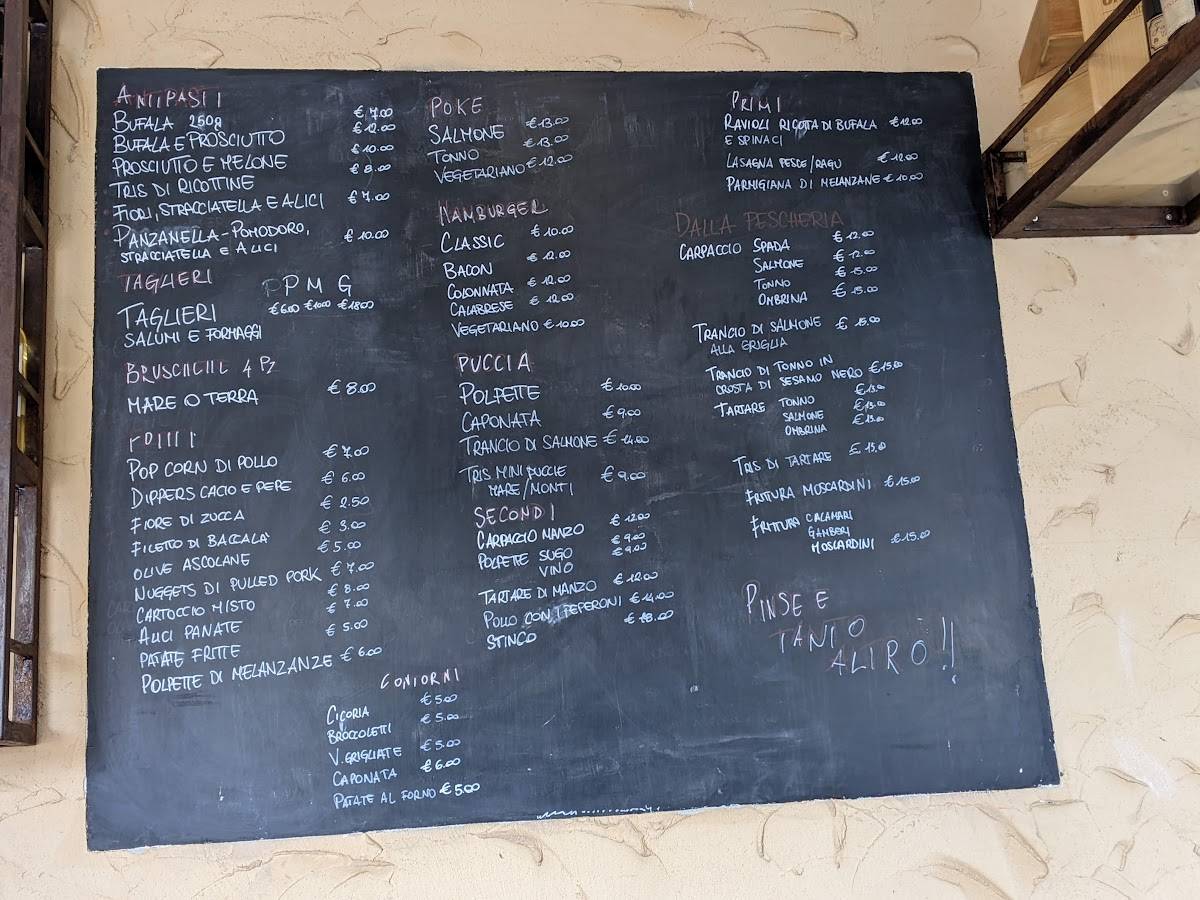 ANTIPASTI
BUFALA 250g € 7.00
BUFALA E PROSCIUTTO € 12.00
PROSCIUTTO E MELONE € 10.00
TRIS DI RICOTTINE € 8.00
FIORI, STRACCIATELLA E ALICI € 7.00
PANZANELLA - POMODORO, € 10.00
STRACCIATELLA E ALICI
TAGLIERI P M G
TAGLIERI € 6.00 € 10.00 € 18.00
SALUMI E FORMAGGI
BRUSCHETTE 4 PZ
MARE O TERRA € 8.00
FRITTI
POP CORN DI POLLO € 7.00
DIPPERS CACIO E PEPE € 6.00
FIORE DI ZUCCA € 2.50
FILETTO DI BACCALA' € 3.00
OLIVE ASCOLANE € 5.00
NUGGETS DI PULLED PORK € 7.00
CARTOCCIO MISTO € 8.00
ALICI PANATE € 7.00
PATATE FRITTE € 5.00
POLPETTE DI MELANZANZE € 6.00
CONTORNI
CICORIA € 5.00
BROCCOLETTI € 5.00
V. GRIGLIATE € 5.00
CAPONATA € 6.00
PATATE AL FORNO € 5.00
POKE
SALMONE € 13.00
TONNO € 13.00
VEGETARIANO € 12.00
HAMBURGER
CLASSIC € 10.00
BACON € 12.00
COLONNATA € 12.00
CALABRESE € 12.00
VEGETARIANO € 10.00
PUCCIA
POLPETTE € 10.00
CAPONATA € 9.00
TRANCIO DI SALMONE € 14.00
TRIS MINI PUCCIE € 9.00
MARE/MONTI
SECONDI
CARPACCIO MANZO € 12.00
POLPETTE SUGO € 9.00
VINO € 9.00
TARTARE DI MANZO € 12.00
POLLO CON I PEPERONI € 14.00
STINCO € 18.00
PRIMI
RAVIOLI RICOTTA DI BUFALA € 12.00
E SPINACI
LASAGNA PESCE/RAGU € 12.00
PARMIGIANA DI MELANZANE € 10.00
DALLA PESCHERIA
CARPACCIO SPADA € 12.00
SALMONE € 12.00
TONNO € 15.00
OMBRINA € 15.00
TRANCIO DI SALMONE € 15.00
ALLA GRIGLIA
TRANCIO DI TONNO IN
CROSTA DI SESAMO NERO € 15.00
TARTARE TONNO € 13.00
SALMONE € 13.00
OMBRINA € 13.00
TRIS DI TARTARE € 15.00
FRITTURA MOSCARDINI € 15.00
FRITTURA CALAMARI
GAMBERI
MOSCARDINI € 15.00
PINSE E
TANTO
ALTRO!!